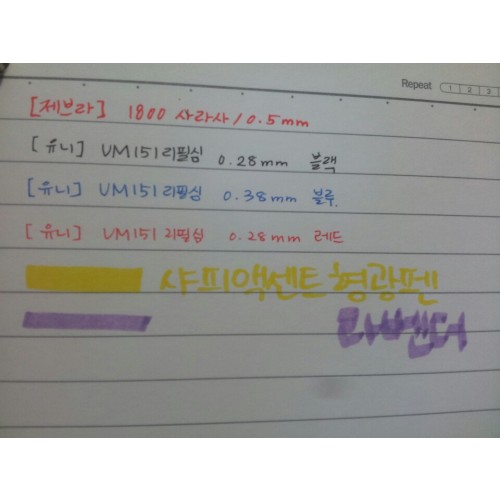 Repeat 1 2 3
[제브라] 1800 사라사/0.5mm
[유니] UM151 리필심 0.28mm 블랙
[유니] UM151 리필심 0.38mm 블루.
[유니] UM151 리필심 0.28mm 레드
샤피액센트형광펜
라벤더